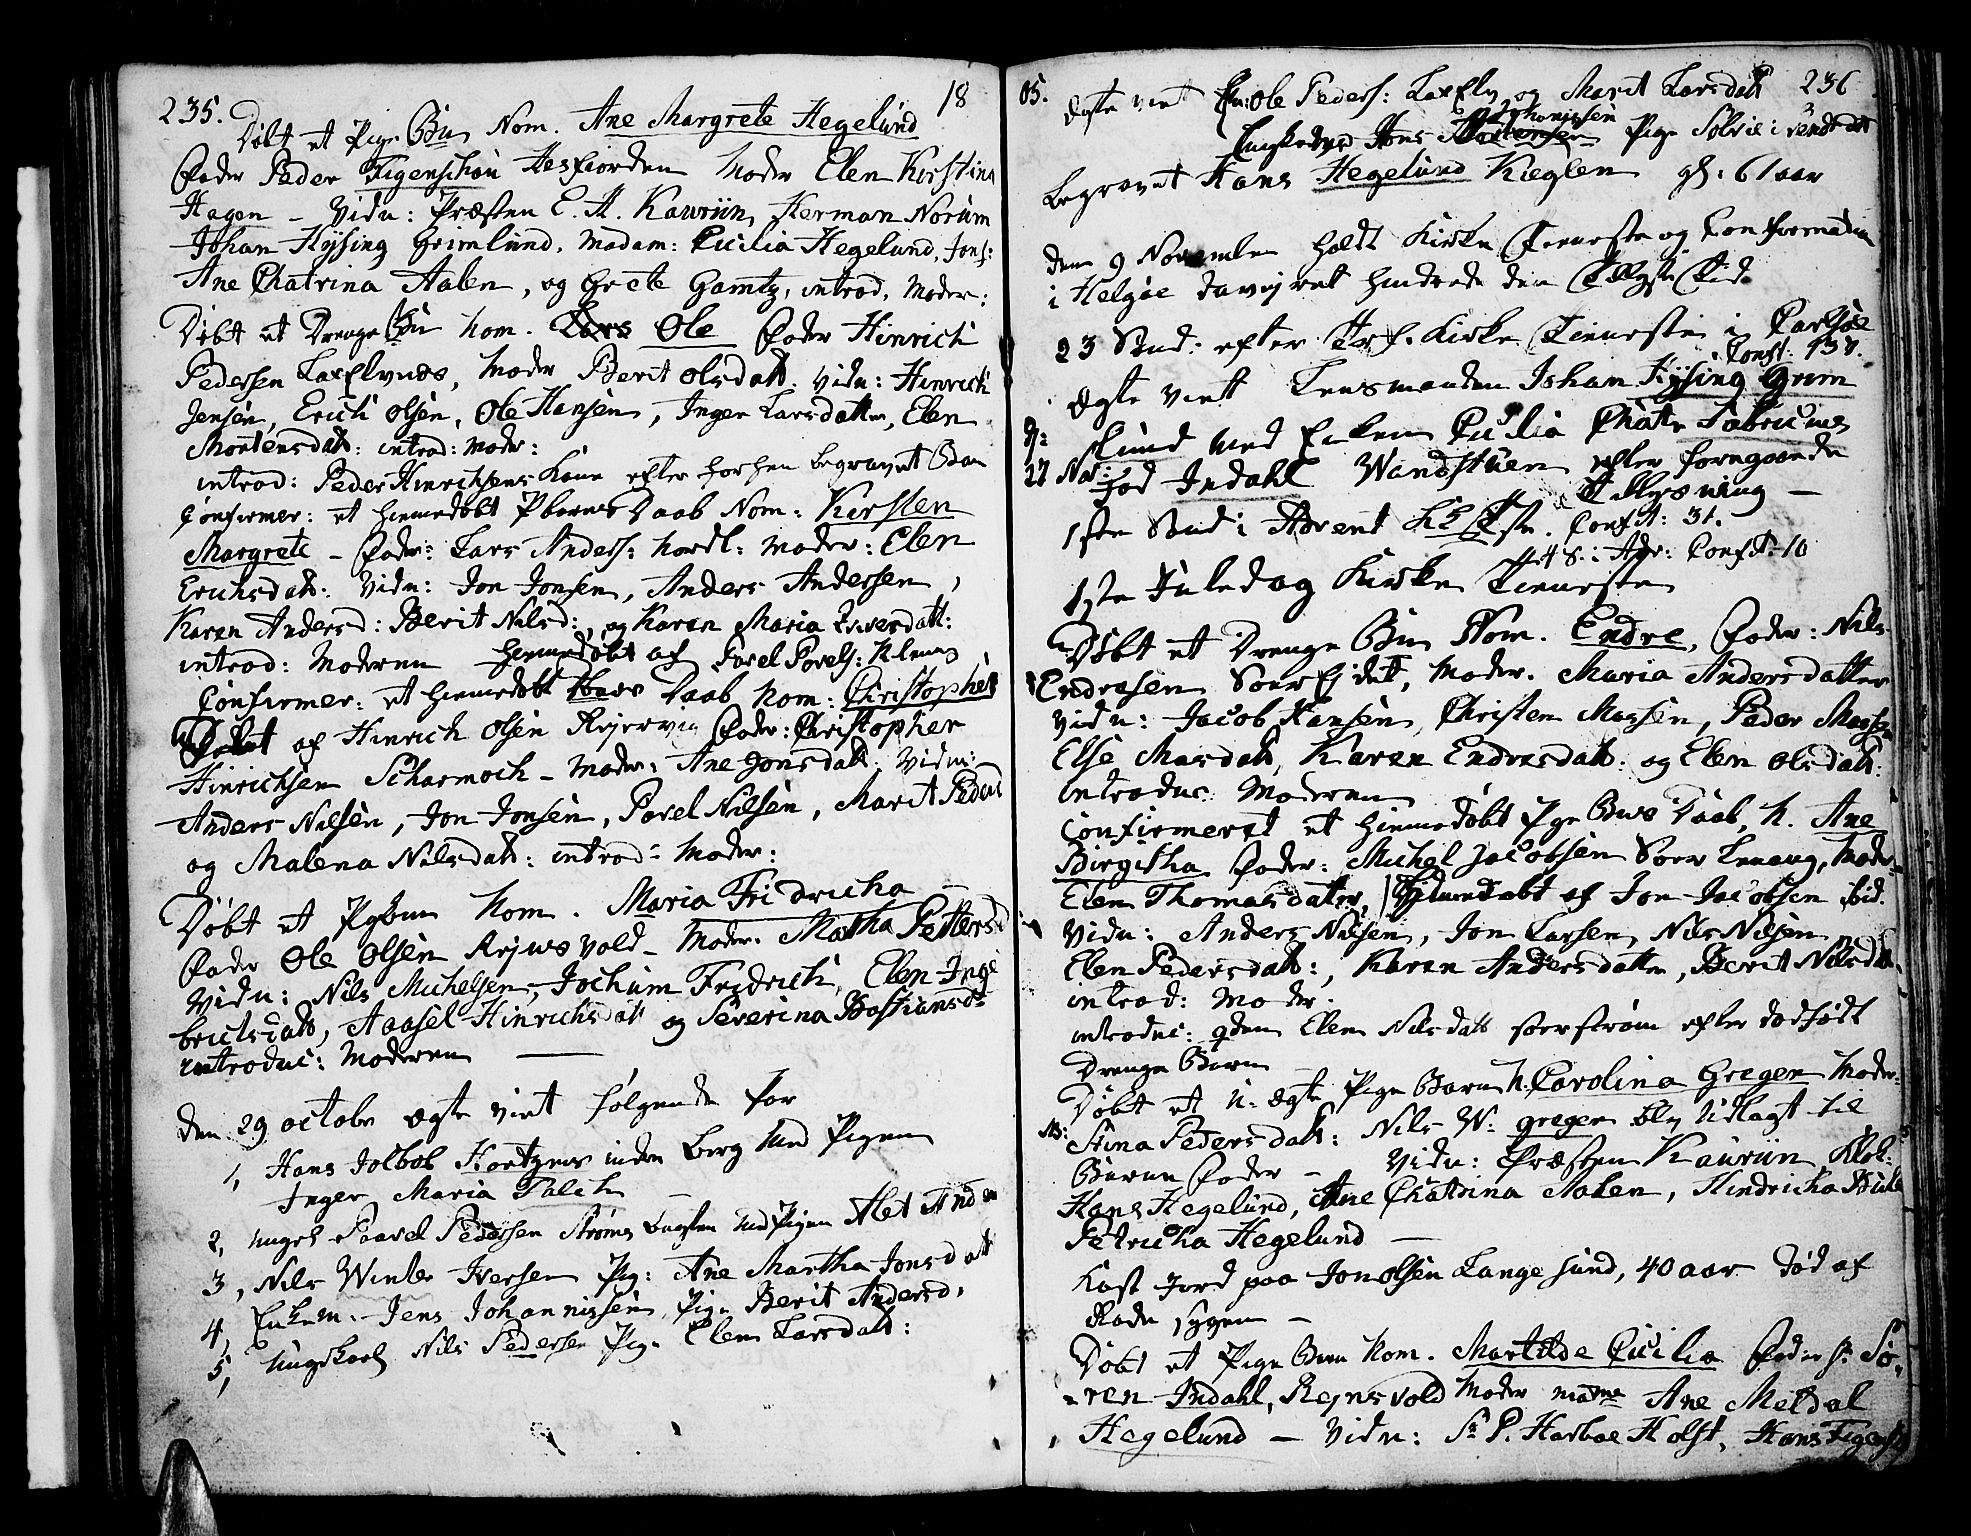 235. 18
Døbt et Pige Bn Nom. Ane Margrete Hegelund
Fader Peder Figenschou Hesfiorden Moder Elen Kirstina
Hagen – Vidn: Præsten E. A. Kawriin, Herman Norum
Johan Hysing Grimlund, Madam: Cicilia Hegelund, Jomf:
Ane Chatrina Aalen, og Grete Gamtz, introd. Moder:
Døbt et Drenge Bn Nom. Ole Fader Hinrich
Pedersen Laxelvnes, Moder Berit Olsdatt. Vidn: Hinrich
Jensen, Erich Olsen, Ole Hansen, Inger Larsdatter, Elen
Mortensdatt: introd: Moder:
introd: Peder Hinrichsens Kone efter forhen begravet Barn
Confirmer: et hiemedøbt Daab Nom: Kirsten
Margrete – Fader: Lars Anders: Nordl: Moder: Elen
Erichsdatt: Vidn: Jon Jonsen, Anders Andersen,
Karen Andersd: Berit Nilsd:, og Karen Maria Iversdatt:
introd: Moderen hiemedøbt af Povel Povels:
Confirmer: et hiemedøbt Daab Nom: Christopher
af Hinrich Olsen Fader: Christopher
Hinrichsen Scharmoch – Moder: Ane Jonsdatt. Vidn:
Anders Nilsen, Jon Jonsen, Povel Nilsen, Marit Peders
og Malena Nilsdatt: introd: Moder:
Døbt et Nom. Maria Fridricha
Fader Ole Olsen Rejnsvold – Moder. Martha Pettersd
Vidn: Nils Michelsen, Jochum Fridrich, Elen Inge
brictsdatt, Aaasel Hinrichsdatt og Severina Bastiansd
introduc: Moderen
den 29 octobr ægte viet følgende Par
1, Hans Jolbob Kortznes inden berg med Pigen
Inger Maria Falch
2, Ungk Paavel Pedersen Strømes med Pigen Alet
3, Nils Winter Iversen Pig: Ane Martha Jonsdatt
4, Enkem. Jens Johannissen, Pige Berit Andersd.
5, Ungkarl Nils Pedersen Pig. Elen Larsdatt:
05. 236
ægte viet Ole Peders: Laxelv og Marit Larsdatt
Thomissen
Enkemd Hans Pige Sølvie
begravet Hans Hegelund Kieglen gl: 61 aar
den 9 November holdt Kirke Tieneste og Confirmation
i Helgøe da vejret hindrede den Tid
23 Sønd: efter Trf. Kirke Tieneste i Carlsøe
Conft: 138.
ægte viet Lensmanden Johan Hysing Grim
lund med Enken Cicilia Chatr. Fabricius
27 Nov: hos Indahl Wandstuen efter foregaaende
Tillysning –
1ste Sønd: i Advent K: Tste. Conft: 31.
4 S: i Adv: Conft: 10
1ste Juledag Kirke Tieneste
Døbt et Drenge Bn Nom. Endre, Fader: Nils
Endresen Sørejdet, Moder. Maria Andersdatter
Vidn: Jacob Hansen, Christen Massen, Peder Massen
Else Masdatt, Karen Endresdatt: og Elen Olsdatt:
introduc: Moderen
Confirmeret et hiemedøbt Pige Bns Daab, N. Ane
Birgitha Fader: Michel Jacobsen Sør Lenang, Moder:
Elen Thomasdatter, hiemedøbt af Jon Jacobsen ibid.
Vidn: Anders Nilsen, Jon Larsen, Nils Nilsen
Elen Pedersdatt:, Karen Andersdatter, Berit Nilsdatt.
introd: Moder.
introduc: qden Elen Nilsdatt Sørstrøm efter dødfødt
Drenge Barn
Døbt et U-ægte Pige Barn N. Carolina Greger Moder
NB: Stina Pedersdatt: Nils W: greger blv Udlagt til
Barne Fader – Vidn: Præsten Kauriin, Klok:
Hans Hegelund, Ane Chatrina Aalen, Hindricha
Petricha Hegelund –
Kast Jord paa Jon Olsen Langesund, 40 aar død af
Rade sygen –
Døbt et Pige Bn Nom. Martilde Cicilia Fader Sr Sø-
ren Indahl, Rejnsvold Moder Mame Ane Meldal
Hegelund – Vidn: Sr P. Harboe Holst, Hans Figensch